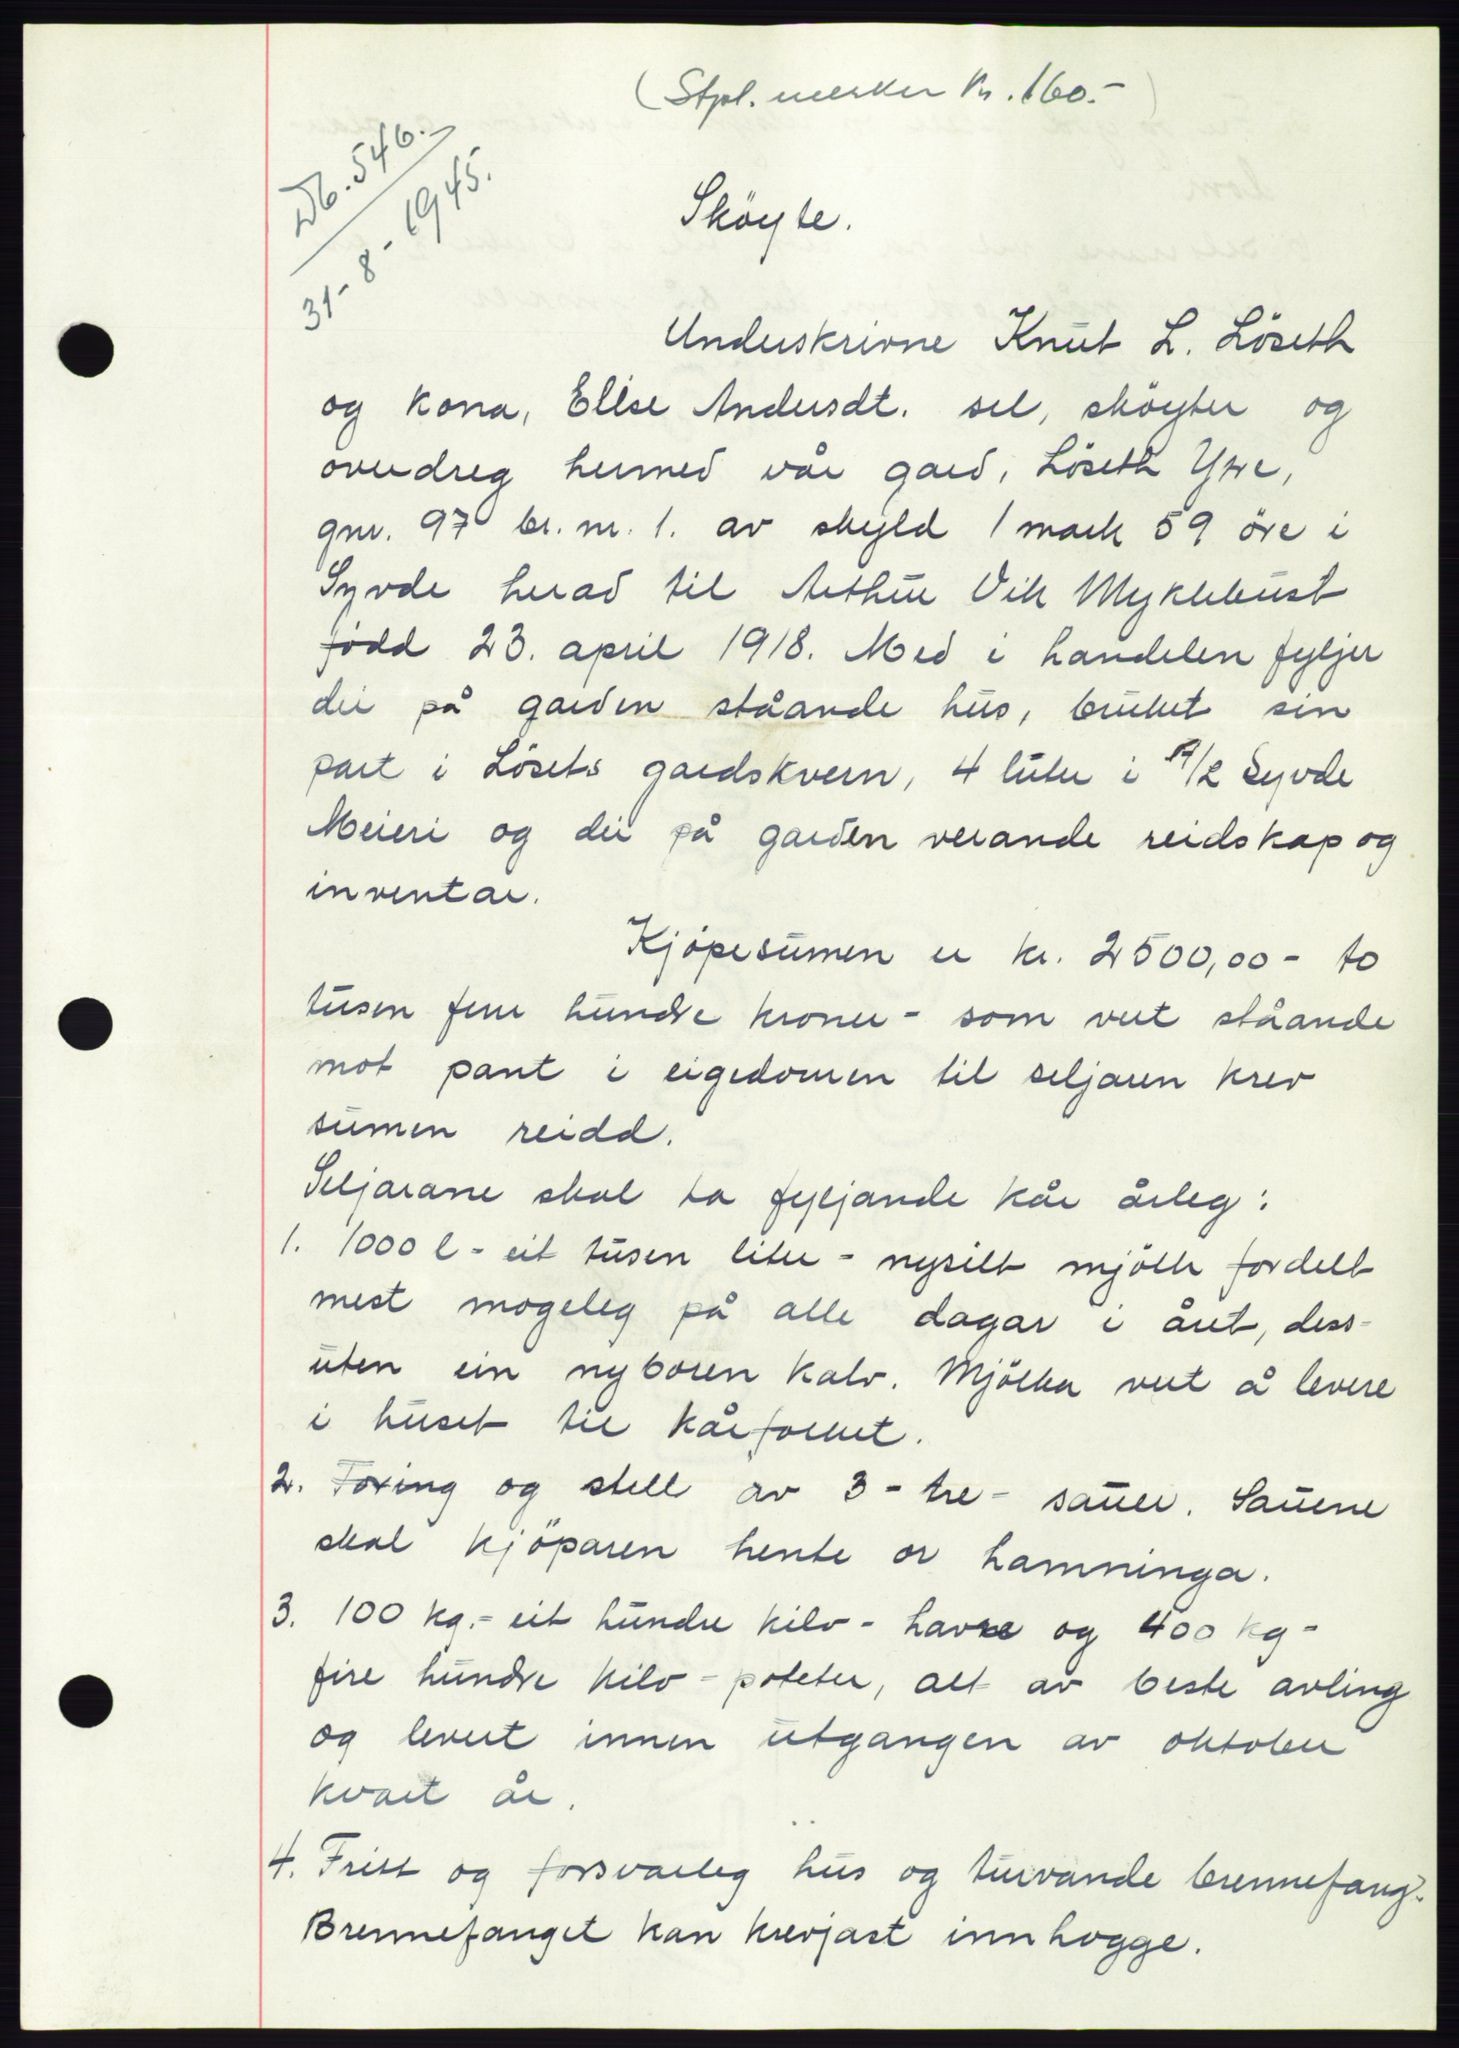 (Stpl. merker kr. 160.-)
Db. 546.-
31-8-1945.
Sköyte.
Underskrivne Knut L. Löseth
og kona, Elise Andersdt. sel, sköyter og
overdreg hermed vår gard, Löseth Ytre,
gnr. 97 br. nr. 1. av skyld 1 mark 59 öre i
Syvde herad til Arthur Vik Myklebust
född 23. april 1918. Med i handelen fylgjer
dei på garden ståande hus, bruket sin
part i Lösets gardskvern, 4 luter i A/L Syvde
Meieri og dei på garden verande reidskap og
inventar.
Kjöpesumen er kr. 2500,00 - to
tusen fem hundre kroner - som vert ståande
mot pant i eigedomen til seljaren krev
sumen reidd.
Seljarane skal ha fylgjande kår årleg:
1. 1000 l - eit tusen liter - nysilt mjölk fordelt
mest mogeleg på alle dagar i året, dess-
uten ein nyboren kalv. Mjölka vert å levere
i huset til kårfolket.
2. Foring og stell av 3 - tre - sauer. Sauene
skal kjöparen hente or hamninga.
3. 100 kg. - eit hundre kilo - havre og 400 kg -
fire hundre kilo - poteter, alt av beste avling
og levert innen utgangen av oktober
kvart år.
4. Fritt og forsvarleg hus og turvande brennefang.
Brennefanget kan krevjast innhogge.